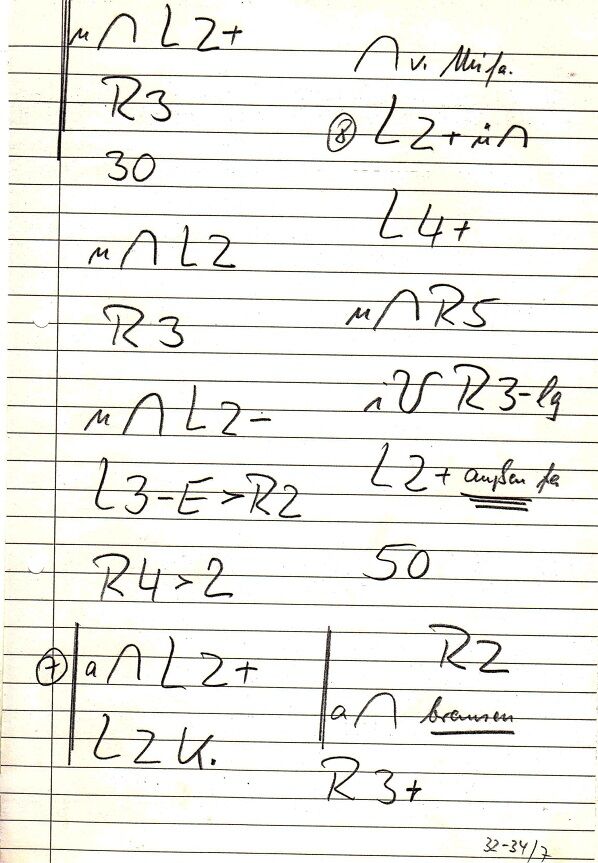 ∩ L2+
R3
30
∩ L2
R3
∩ L2-
L3-E>R2
R4>2
⑦ a∩ L2+
L2 K.
∩ v.
⑧ L2+ ∩
L4+
∩ R5
R3-lg
L2+ außen
50
R2
a∩ bremsen
R3+
32-34/7